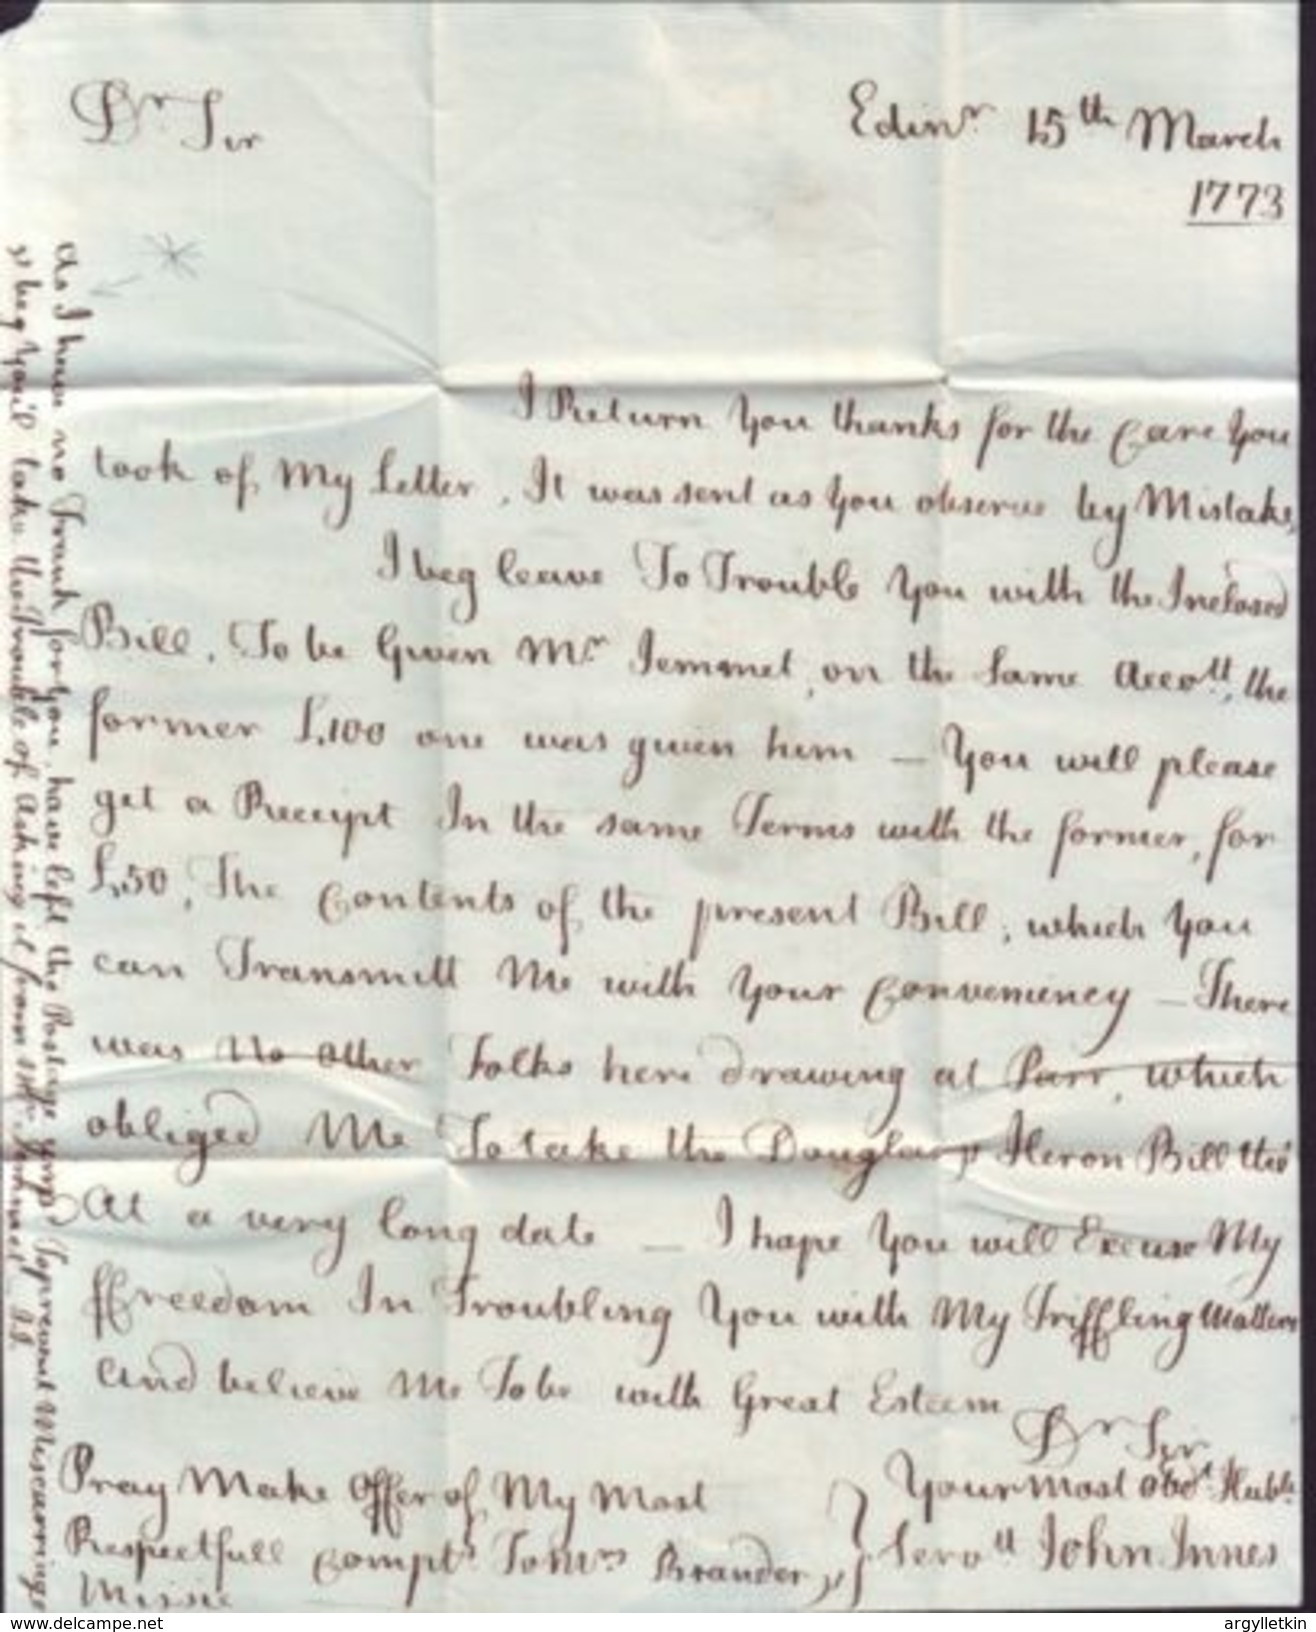 Dr Sir
Edinr 15th March
1773
I Return You thanks for the Care You
took of My Letter, It was sent as You observe by Mistake,
I beg leave To Trouble You with the Inclosed
Bill, To be Given Mr Jemmet, on the Same Accott, the
former £100 one was given him — You will please
get a Receipt In the same Terms with the former, for
£50, The Contents of the present Bill, which You
can Transmitt Me with Your Conveniency — There
was No other Folks here drawing at Parr, which
obliged Me To take the Douglas Heron Bill tho'
At a very long date — I hope You will Excuse My
ffreedom In Troubling You with My Triffling Matters
And believe Me To be with Great Esteem
Dr Sir
Your most obedt Huble
Servtt John Innes
Pray Make Offer of My Most
Respectfull Compts To Mrs Brander,
Missie
As I have no Frank for You, have left the Postage unpd To prevent Miscarriage
& beg You'll take the Trouble of Asking it from Mr J.I.
delcampe.net
argylletkin